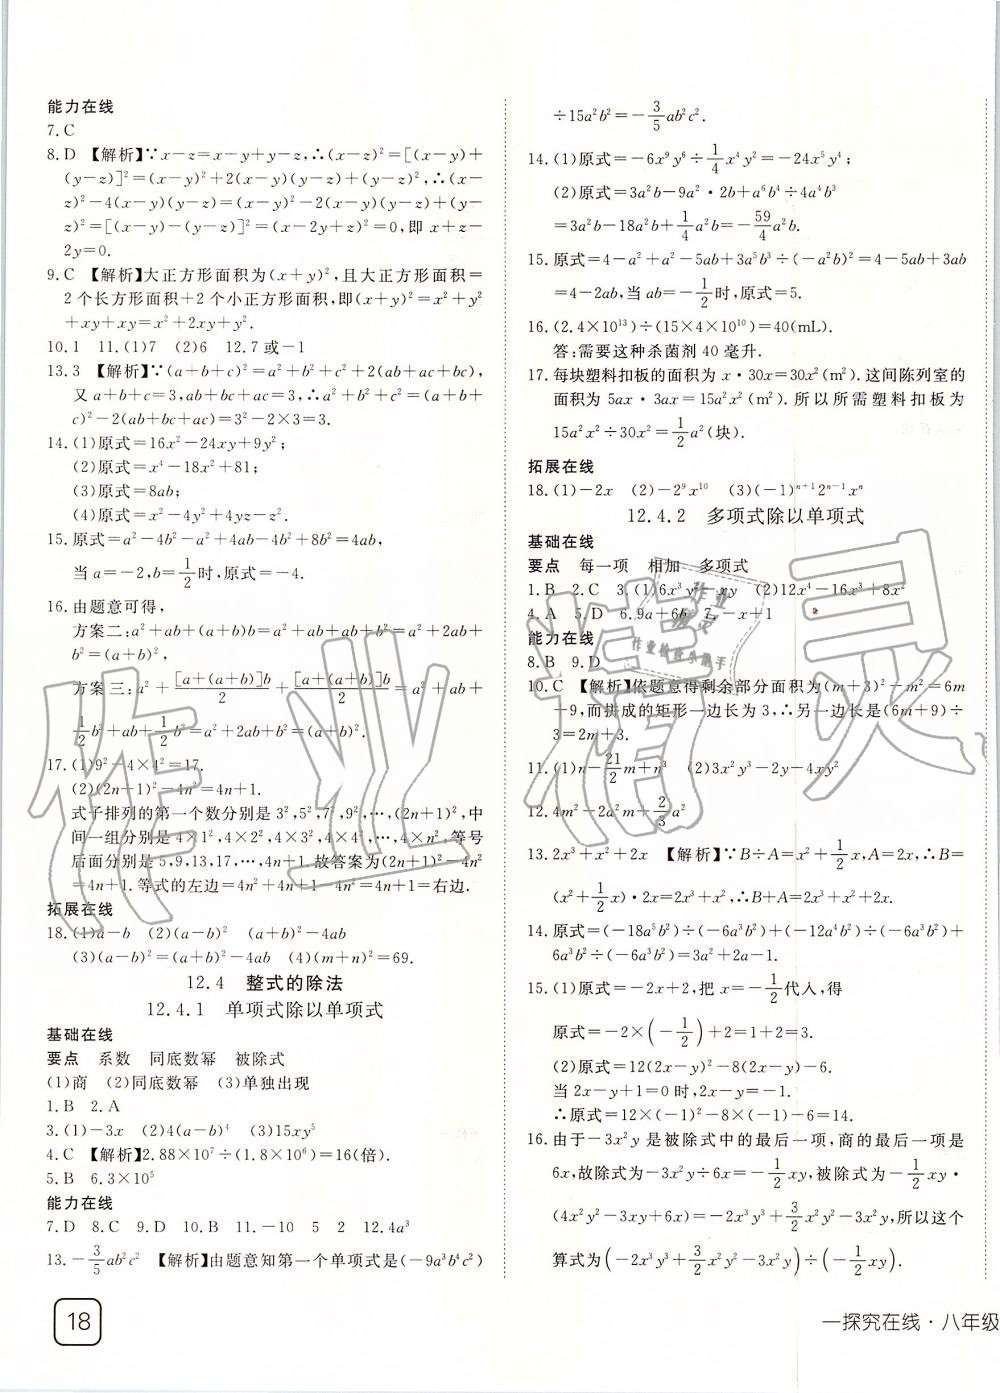 能力在线
7. C
8. D 【解析】∵x-z=x-y+y-z,∴(x-z)²=[(x-y)+
(y-z)]²=(x-y)²+2(x-y)(y-z)+(y-z)²,∴(x-
z)²-4(x-y)(y-z)=(x-y)²-2(x-y)(y-z)+(y-
z)²=[(x-y)-(y-z)]²=(x+z-2y)²=0,即 x+z-
2y=0.
9. C 【解析】大正方形面积为(x+y)²,且大正方形面积=
2个长方形面积+2个小正方形面积,即(x+y)²=x²+y²
+xy+xy=x²+2xy+y².
10. 1 11. (1)7 (2)6 12. 7或-1
13. 3 【解析】∵(a+b+c)²=a²+b²+c²+2(ab+ac+bc),
又a+b+c=3,ab+bc+ac=3,∴a²+b²+c²=(a+b+
c)²-2(ab+bc+ac)=3²-2×3=3.
14. (1)原式=16x²-24xy+9y²;
(2)原式=x⁴-18x²+81;
(3)原式=8ab;
(4)原式=x²-4y²+4yz-z².
15. 原式=a²-4b²-a²+4ab-4b²+8b²=4ab,
当a=-2,b=1/2时,原式=-4.
16. 由题意可得,
方案二:a²+ab+(a+b)b=a²+ab+ab+b²=a²+2ab
+b²=(a+b)²,
方案三:a²+[a+(a+b)]b/2+[a+(a+b)]b/2=a²+ab+
1/2b²+ab+1/2b²=a²+2ab+b²=(a+b)².
17. (1)9²-4×4²=17.
(2)(2n+1)²-4n²=4n+1.
式子排列的第一个数分别是3²,5²,7²,9²,…,(2n+1)²,中
间一组分别是4×1²,4×2²,4×3²,4×4²,…,4×n²,等号
后面分别是5,9,13,17,…,4n+1.故答案为(2n+1)²-4n²
=4n+1.等式的左边=4n²+4n+1-4n²=4n+1=右边.
拓展在线
18. (1)a-b (2)(a-b)² (a+b)²-4ab
(3)(a-b)²=(a+b)²-4ab (4)(m+n)²=69.
12.4 整式的除法
12.4.1 单项式除以单项式
基础在线
要点 系数 同底数幂 被除式
(1)商 (2)同底数幂 (3)单独出现
1. B 2. A
3. (1)-3x (2)4(a-b)⁴ (3)15xy⁵
4. C 【解析】2.88×10⁷÷(1.8×10⁶)=16(倍).
5. B 6. 3×10⁵
能力在线
7. D 8. C 9. D 10. B 11. -10 5 2 12. 4a³
13. -3/5ab²c² 【解析】由题意知第一个单项式是(-9a³b⁴c²)
÷15a²b²=-3/5ab²c².
14. (1)原式=-6x⁹y⁶÷1/4x⁴y²=-24x⁵y⁴;
(2)原式=3a²b-9a²·2b+a⁶b⁴÷4a⁴b³
=3a²b-18a²b+1/4a²b=-59/4a²b.
15. 原式=4-a²+a²-5ab+3a⁵b³÷(-a²b)²=4-5ab+3ab
=4-2ab,当ab=-1/2时,原式=5.
16. (2.4×10¹³)÷(15×4×10¹⁰)=40(mL).
答:需要这种杀菌剂40毫升.
17. 每块塑料扣板的面积为x·30x=30x²(m²).这间陈列室的
面积为5ax·3ax=15a²x²(m²).所以所需塑料扣板为
15a²x²÷30x²=1/2a²(块).
拓展在线
18. (1)-2x (2)-2⁹x¹⁰ (3)(-1)ⁿ⁺¹2ⁿ⁻¹xⁿ
12.4.2 多项式除以单项式
基础在线
要点 每一项 相加 多项式
1. B 2. C 3. (1)6x³y²-xy (2)12x⁴-16x³+8x²
4. A 5. D 6. 9a+6b 7. -x+1
能力在线
8. B 9. D
10. C 【解析】依题意得剩余部分面积为(m+3)²-m²=6m
+9,而拼成的矩形一边长为3,∴另一边长是(6m+9)÷
3=2m+3.
11. (1)n-21/2m+n³ (2)2x³y²-2y-4xy²
12. 4m²-2a²m+2/3a²
13. 2x³+x²+2x 【解析】∵B÷A=x²+1/2x,A=2x,∴B=
(x²+1/2x)·2x=2x³+x²,∴B+A=2x³+x²+2x.
14. 原式=(-18a⁵b²)÷(-6a³b²)+(-12a⁴b²)÷(-6a³b²)+
6a³b²÷(-6a³b²)=3a²+2a-1.
15. (1)原式=-2x+2,把x=-1/2代入,得
原式=-2×(-1/2)+2=1+2=3.
(2)原式=12(2x-y)²-8(2x-y)-6.
当2x-y+1=0时,2x-y=-1.
∴原式=12×(-1)²-8×(-1)-6=14.
16. 由于-3x²y是被除式中的最后一项,商的最后一项是
6x,故除式为-3x²y÷6x=-1/2xy,被除式为-1/2xy·
(4x²y²-3xy+6x)=-2x³y³+3/2x²y²-3x²y,所以这个
算式为(-2x³y³+3/2x²y²-3x²y)÷(-1/2xy).
18
一探究在线·八年级
作业精灵